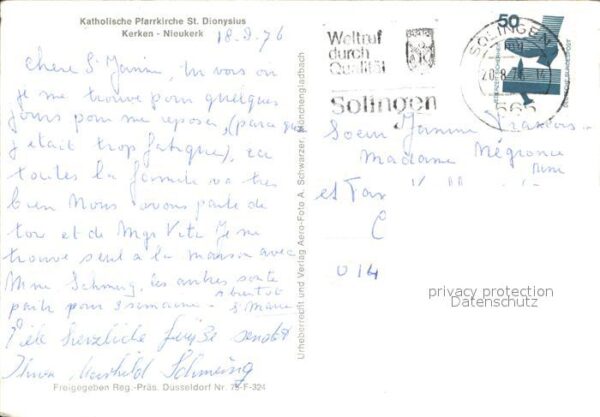 Katholische Pfarrkirche St. Dionysius
Kerken - Nieukerk
18.8.76
Chère Sr Janine, tu vois où
je me trouve pour quelques
jours pour me reposer, (parce que
j'etait trop fatiguée),
toutes la famille va très
bien Nous avons parlé de
toi et de Mgr Vita Je me
trouve seul à la maison avec
Mme Schmeing, les autres sont
partit pour 3 semaine - a bientôt
Sr Marie
Viele herzliche Grüße sendet
Ihnen Mechthild Schmeing
Freigegeben Reg.-Präs. Düsseldorf Nr. 75-F-324
Urheberrecht und Verlag Aero-Foto A. Schwarzer, Mönchengladbach
Weltruf
durch
Qualität
Solingen
SOLINGEN
20.8.76
565
50
DEUTSCHE BUNDESPOST
Soeur Janine
Madame Négronie
et
C
U 14
privacy protection
Datenschutz